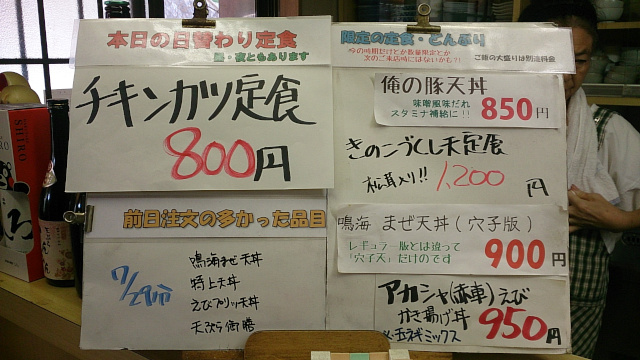 本日の日替わり定食
昼・夜ともあります
チキンカツ定食
800円
前日注文の多かった品目
7/29分
鳴海まぜ天丼
特上天丼
えびプリッ天丼
天ぷら御膳
限定の定食・どんぶり
今の時期だけとか数量限定とか
次のご来店時にはないかも?!
ご飯の大盛りは別途料金
俺の豚天丼
味噌風味だれ
スタミナ補給に!!
850円
きのこづくし天定食
松茸入り!! 1,200円
鳴海 まぜ天丼(穴子版)
レギュラー版とは違って
「穴子天」だけのです
900円
アカシャ(赤車)えび
かき揚げ丼
玉ネギミックス
950円